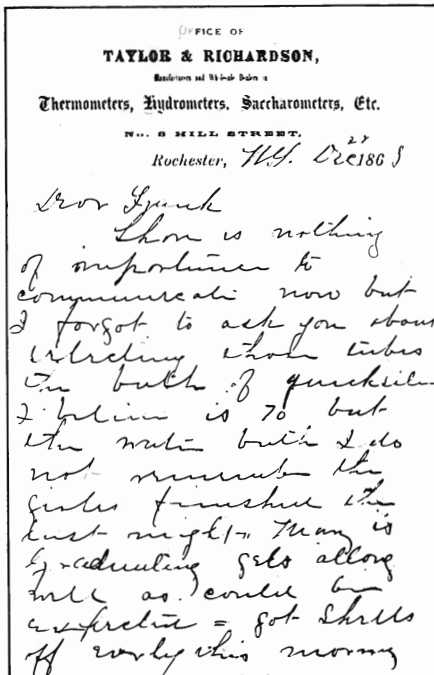 OFFICE OF
TAYLOR & RICHARDSON,
Manufacturers and Wholesale Dealers in
Thermometers, Hydrometers, Saccharometers, Etc.
No. 8 MILL STREET,
Rochester, N.Y. Dec 28 186
Dear Frank
There is nothing
of importance to
communicate now but
I forgot to ask you about
those tubes
the bath of quicksilver
I believe is 70 but
the water bath I do
not remember the
girls finished the
last night. Mary is
graduating gets allong
well as could be
expected = got
off early this morning